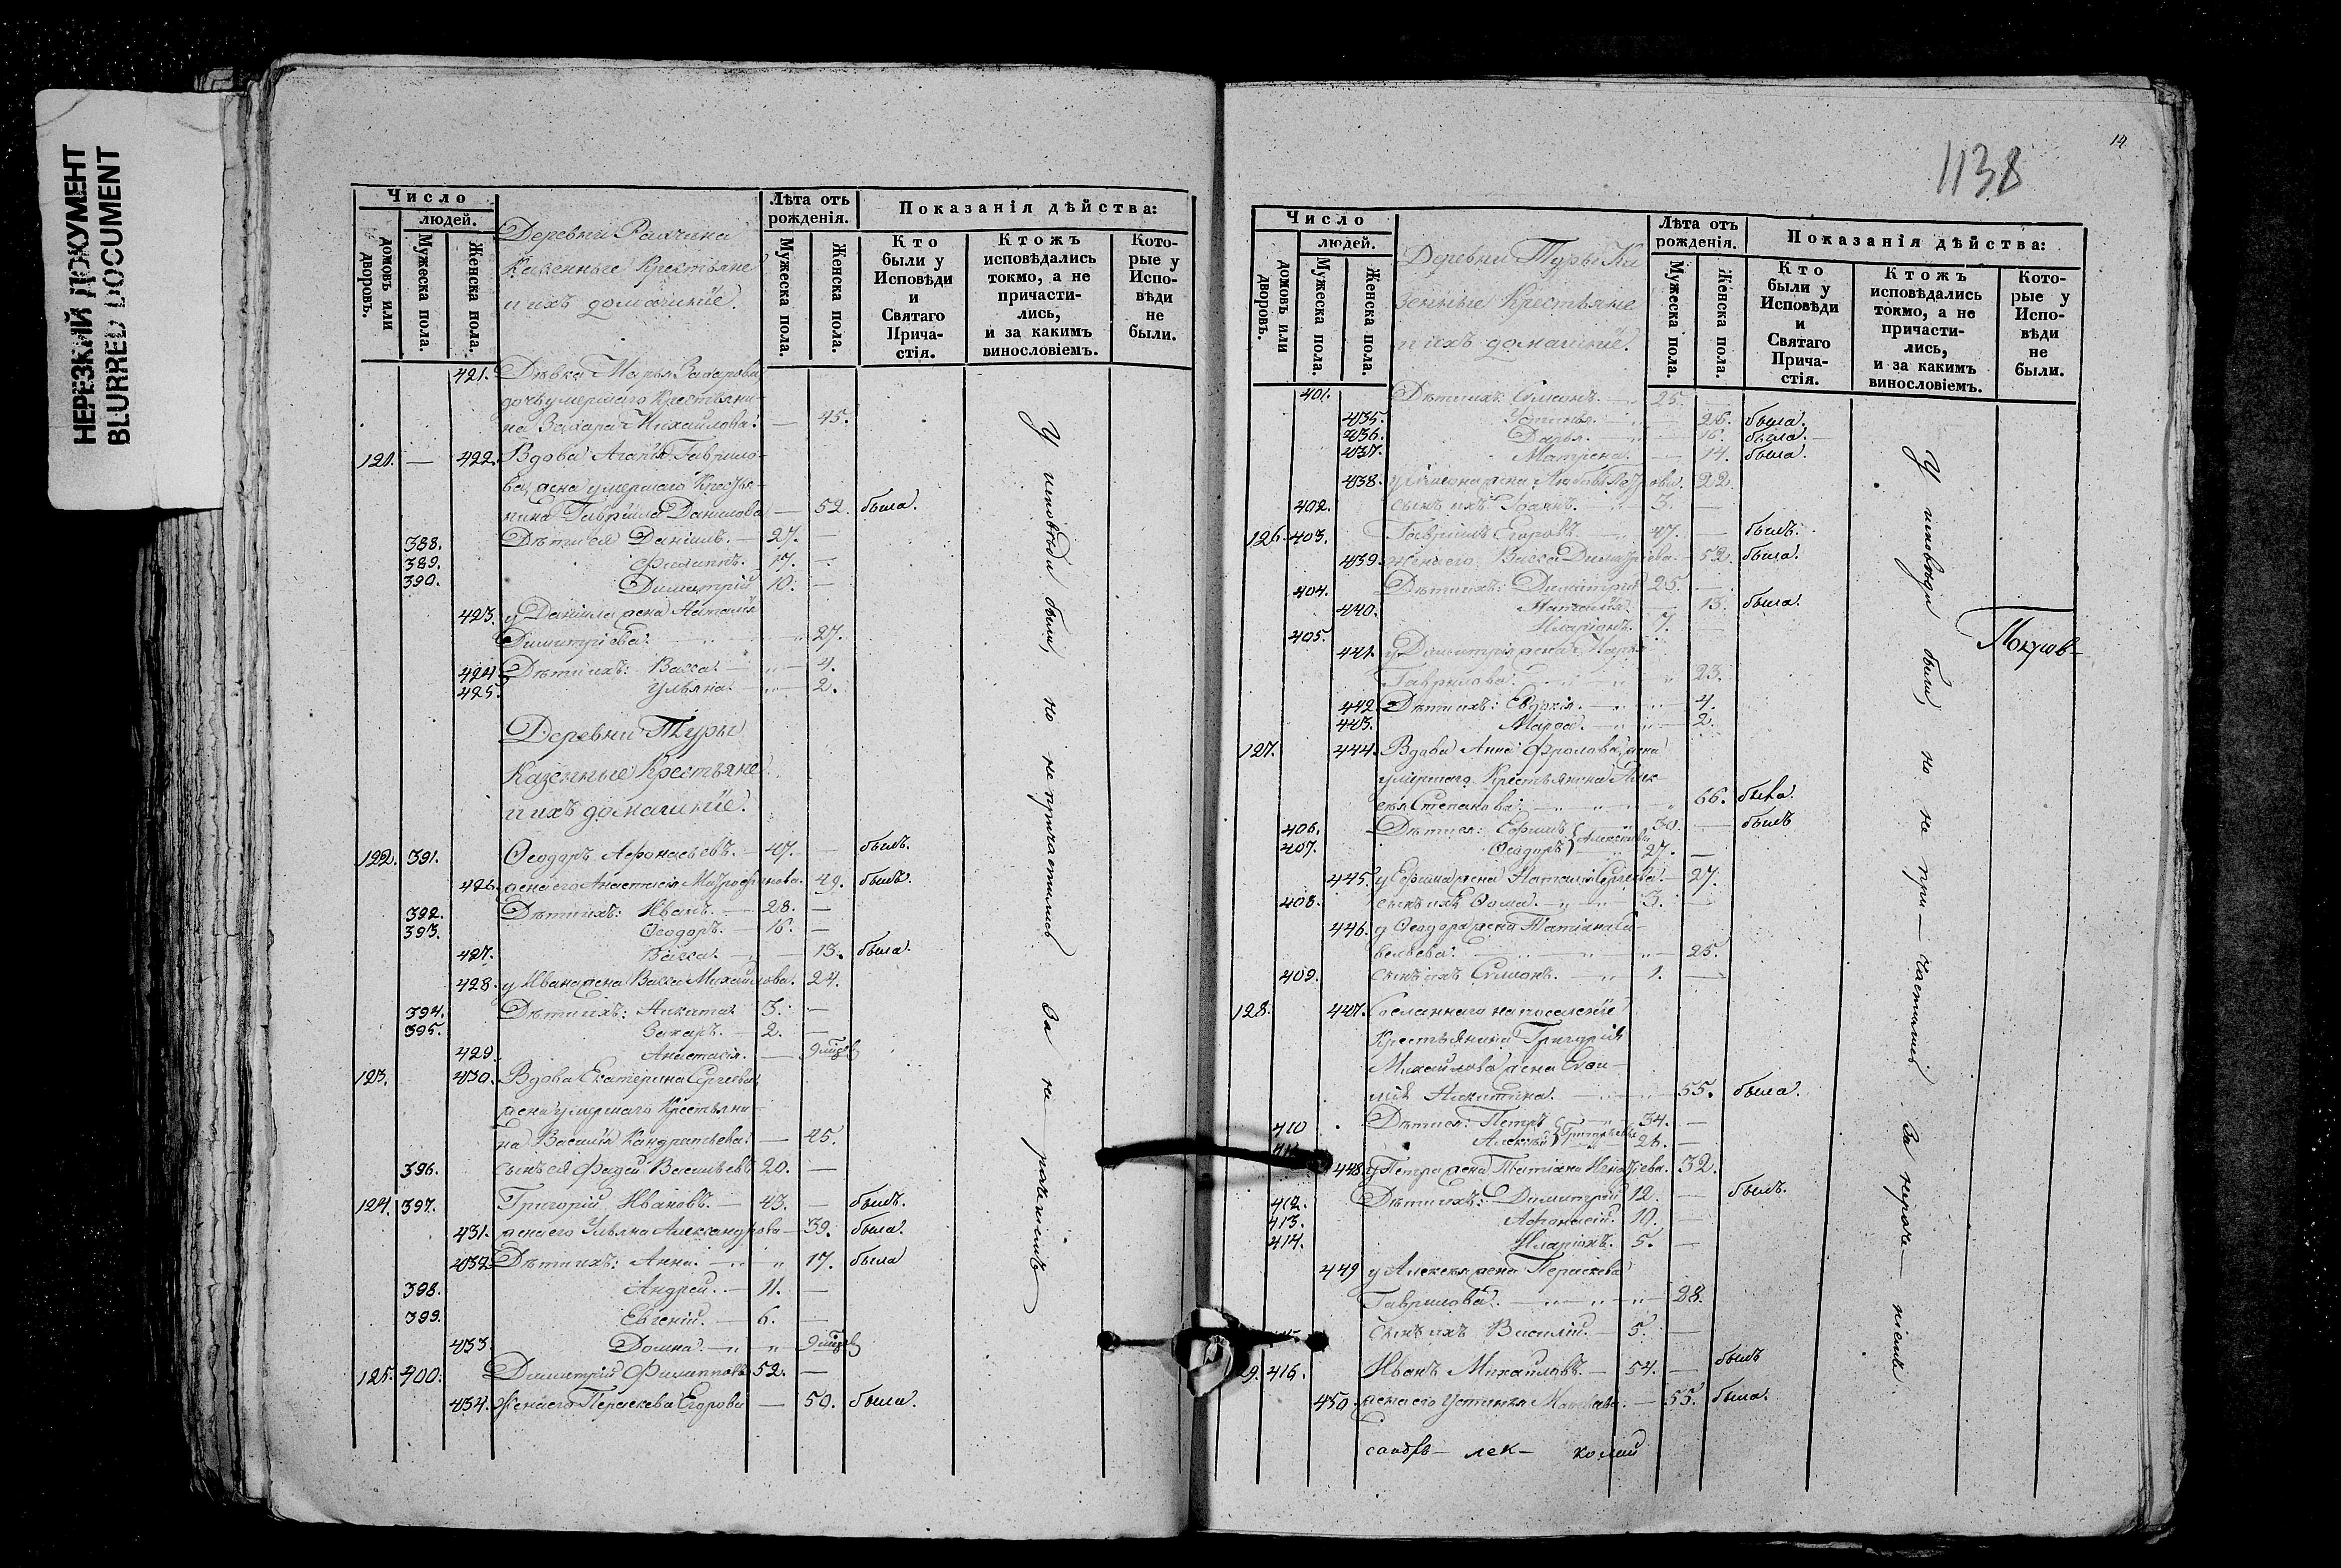 НЕРЕЗКИЙ ДОКУМЕНТ
BLURRED DOCUMENT
Число
людей.
домовъ или дворовъ.
Мужеска пола.
Женска пола.
Деревни
Казенные Крестьяне
и ихъ домашніе.
Лѣта отъ рожденія.
Мужеска пола.
Женска пола.
Показанія дѣйства:
Кто были у Исповѣди и Святаго Прича-стія.
Ктожъ исповѣдались токмо, а не причасти-лись, и за какимъ винословіемъ.
Кото-рые у Испо-вѣди не были.
421. Дѣвка Марья Захарова,
дочь умершаго Крестьяни-
на Захара Михайлова. — 45.
121. — 422. Вдова Агафія Гаврило-
ва, жена умершаго Крестья-
нина Гавріила Данилова — 52. была.
388. Дѣти ея Даніилъ. — 27. —
389. Филиппъ. 17. —
390. Димитрій 10. —
423. у Даніила жена Наталія
Димитріева. 27.
424 Дѣти ихъ: Васса. 4.
425. Ульяна. 2.
Деревни Туры
Казенные Крестьяне
и ихъ домашніе.
122. 391. Ѳеодоръ Аѳонасьевъ. — 47. — былъ.
426. жена его Анастасія Митрофанова. 49. былъ.
392. Дѣти ихъ: Иванъ. — 28. —
393. Ѳеодоръ. — 16. —
427. Васса. — 13. была.
428. у Ивана жена Васса Михайлова. 24.
394. Дѣти ихъ: Никита. 3. —
395. Захаръ. 2. —
429. Анастасія. — 9 мѣс
123. 430. Вдова Екатерина Сергѣева
жена умершаго Крестьяни-
на Василія Кандратьева. — 45.
396. сынъ ея Фадей Васильевъ 20. —
124. 397. Григорій Ивановъ. — 43. — былъ.
431. жена его Ульяна Александрова — 39. была.
432 Дѣти ихъ: Анна. 17. была
398. Андрей. — 11. —
399. Евгеній. — 6. —
433. Домна. 9 мѣс
125. 400. Димитрій Филипповъ 52. —
434. Жена его Параскева Егорова — 50. была.
У исповѣди были, но не причастились за не раченіемъ
1138
14.
Число
людей.
домовъ или дворовъ.
Мужеска пола.
Женска пола.
Деревни Туры Ка
зенные Крестьяне
и ихъ домашніе.
Лѣта отъ рожденія.
Мужеска пола.
Женска пола.
Показанія дѣйства:
Кто были у Исповѣди и Святаго Прича-стія.
Ктожъ исповѣдались токмо, а не причасти-лись, и за какимъ винословіемъ.
Кото-рые у Испо-вѣди не были.
401. Дѣти ихъ: Симонъ. 25. —
435. Устинья. 26. была.
436. Дарья. 16. была.
437. Матрена. — 14. была.
438. у Симона жена Любовь Петрова. 22.
402. сынъ ихъ Іоаннъ. 3. —
126. 403. Гавріилъ Егоровъ. 47. — былъ.
439. жена его Васса Димитріева — 52. была.
404. Дѣти ихъ: Димитрій 25. —
440. Наталія. 13. была.
405. Иларіонъ. 7. —
441. у Димитрія жена Марья
Гаврилова. 23.
442. Дѣти ихъ: Евдокія. 4.
443. Марѳа. 2.
127. 444. Вдова Анна Фролова, жена
умершаго Крестьянина Алек-
сѣя Степанова. 66. была.
406. Дѣти ея: Ефимъ 30. — былъ
407. Ѳеодоръ } Алексѣевы 27. —
445. у Ефима жена Наталія Сергѣева. — 27.
408. сынъ ихъ Ѳома. 3. —
446. у Ѳеодора жена Татіана Са-
вельева. 25.
409. сынъ ихъ Симонъ. 1. —
128. 447. Сосланнаго на поселеніе
Крестьянина Григорія
Михайлова жена Евѳи-
мія Никитина. 55. была.
410 Дѣти ея: Петръ 34. —
411 Алексѣй } Григорьевы 26. —
448. у Петра жена Татіана Игнатьева. 32.
412. Дѣти ихъ: Димитрій 12. — былъ.
413. Аѳанасій. 10. —
414. Иларіонъ. 5. —
449 у Алексѣя жена Параскева
Гаврилова. 28.
сынъ ихъ Василій. — 5. —
9. 416. Иванъ Михайловъ. — 54. — былъ
450 жена его Устинья — 55. была.
У исповѣди были, но не при-частились за нераче-ніемъ.
лек-